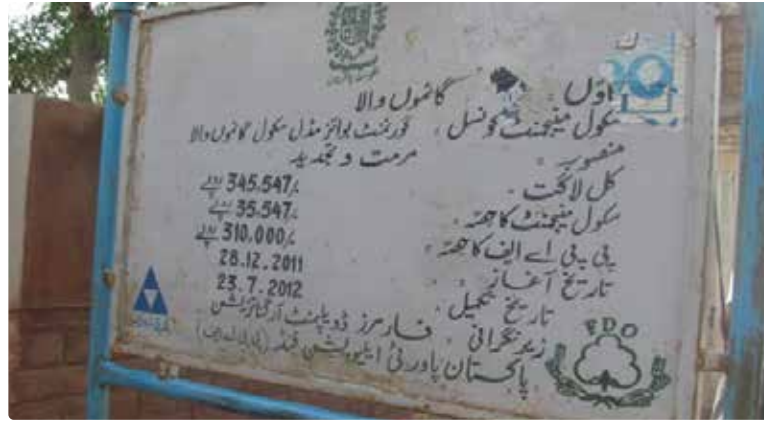 گاؤں گانموں والا
سکول مینجمنٹ کونسل ۔ گورنمنٹ بوائز مڈل سکول گانموں والا
منصوبہ ۔ مرمت و تجدید
کل لاگت ۔ 345,547/ روپے
سکول مینجمنٹ کا حصہ ۔ 35,547/ روپے
پی پی اے ایف کا حصہ ۔ 310,000/ روپے
تاریخ آغاز ۔ 28.12.2011
تاریخ تکمیل ۔ 23.7.2012
زیر نگرانی ۔ فارمرز ڈویلپمنٹ آرگنائزیشن
پاکستان پاورٹی ایلیویشن فنڈ (پی پی اے ایف)
FDO